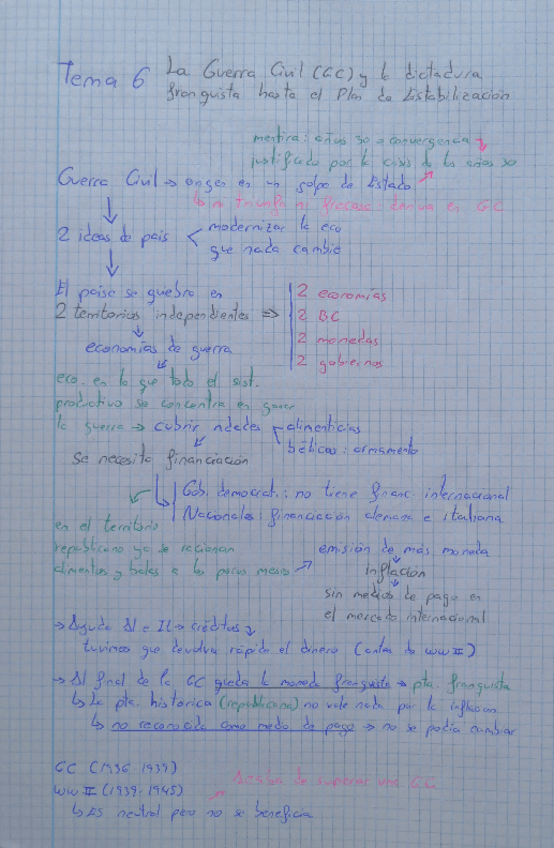 Tema 6 La Guerra Civil (GC) y la dictadura
franquista hasta el Plan de Estabilización
mentira: años 30 = convergencia
justificado por la crisis de los años 30
Guerra Civil → origen en un golpe de Estado
↳ ni triunfa ni fracasa: deriva en GC
2 ideas de país < modernizar la eco
que nada cambie
El paise se quebra en
2 territorios independientes ⇒
2 economías
2 BC
2 monedas
2 gobiernos
economías de guerra
eco. en la que todo el sist.
productivo se concentra en ganar
la guerra → cubrir ndades
alimenticias
bélicas: armamento
se necesita financiación
Gob. democrat.: no tiene financ. internacional
Nacionales: financiación alemana e italiana
en el territorio
republicano ya se racionan
alimentos y balas a los pocos meses
emisión de más moneda
inflación
sin medios de pago en
el mercado internacional
→ Ayuda Al e It → créditos
tuvimos que devolver rápido el dinero (antes de WW II)
→ Al final de la GC queda la moneda franquista → pta. franquista
↳ la pta. histórica (republicana) no vale nada por la inflación
↳ no reconocida como medio de pago → no se podía cambiar
GC (1936-1939)
WW II (1939-1945)
Acaba de superar una GC
↳ ES neutral pero no se beneficia